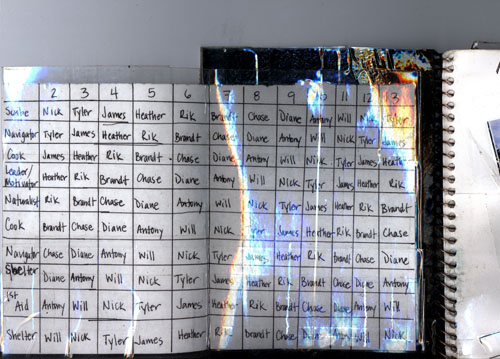 2 3 4 5 6 7 8 9 10 11 12 13
Scribe Nick Tyler James Heather Rik Brandt Chase Diane Antony Will Nick Tyler
Navigator Tyler James Heather Rik Brandt Chase Diane Antony Will Nick Tyler James
Cook James Heather Rik Brandt Chase Diane Antony Will Nick Tyler James
Leader/
Motivator Heather Rik Brandt Chase Diane Antony Will Nick Tyler James Heather Rik
Naturalist Rik Brandt Chase Diane Antony Will Nick Tyler James Heather Rik Brandt
Cook Brandt Chase Diane Antony Will Nick Tyler James Heather Rik brandt Chase
Navigator Chase Diane Antony Will Nick Tyler James Heather Rik brandt Chase Diane
Shelter Diane Antony Will Nick Tyler James Heather Rik Brandt Chase Diane Antony
1st
Aid Antony Will Nick Tyler James Heather Rik Brandt Chase Diane Antony Will
Shelter Will Nick Tyler James Heather Rik brandt Chase Diane Antony Will Nick